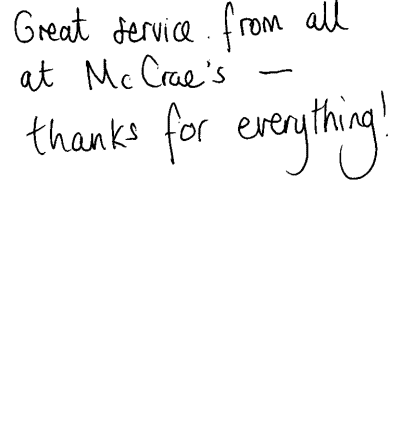 Great service from all
at McCrae's —
thanks for everything!